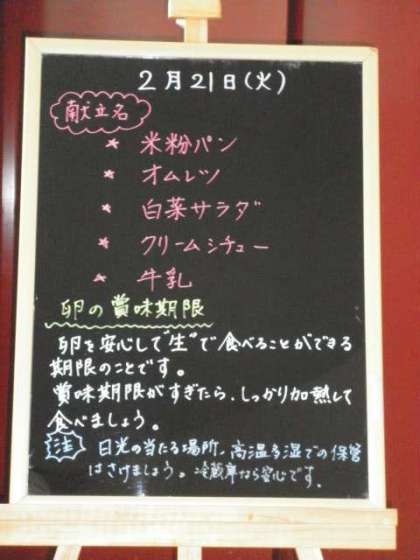 2月21日(火)
献立名
★ 米粉パン
★ オムレツ
★ 白菜サラダ
★ クリームシチュー
★ 牛乳
卵の賞味期限
卵を安心して"生"で食べることができる
期限のことです。
賞味期限がすぎたら、しっかり加熱して
食べましょう。
注 日光の当たる場所、高温多湿での保管
はさけましょう。冷蔵庫なら安心です。